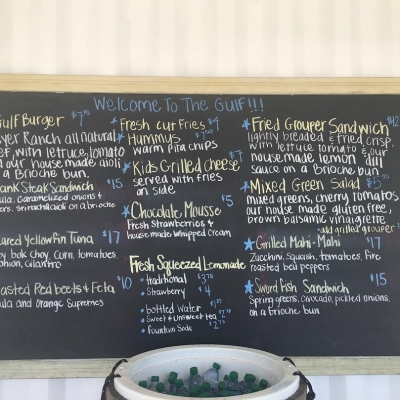 Welcome To The Gulf!!!
Gulf Burger
Ranch all natural
with lettuce, tomato
our house made aioli
a Brioche bun.
Steak Sandwich $15
Caramelized onions &
aioli on a brioche
Yellowfin Tuna $17
bok choy, corn, tomatoes,
cilantro
Roasted Red beets & Feta $10
and orange supremes
Fresh cut Fries
Hummus
warm pita chips
Kids Grilled cheese
served with fries
on side
Chocolate Mousse $5
Fresh Strawberries &
house made whipped cream
Fresh Squeezed Lemonade
traditional
Strawberry $4
bottled water
Sweet & unsweet tea
Fountain Soda
Fried Grouper Sandwich
lightly breaded & fried crisp,
with lettuce tomato & our
housemade lemon dill
sauce on a Brioche bun.
Mixed Green Salad
mixed greens, cherry tomatoes
our house made gluten free,
brown balsamic vinaigrette.
add grilled grouper
Grilled Mahi-Mahi $17
Zucchini, Squash, tomatoes, fire
roasted bell peppers
Sword Fish Sandwich $15
Spring greens, avocado, pickled onions,
on a brioche bun